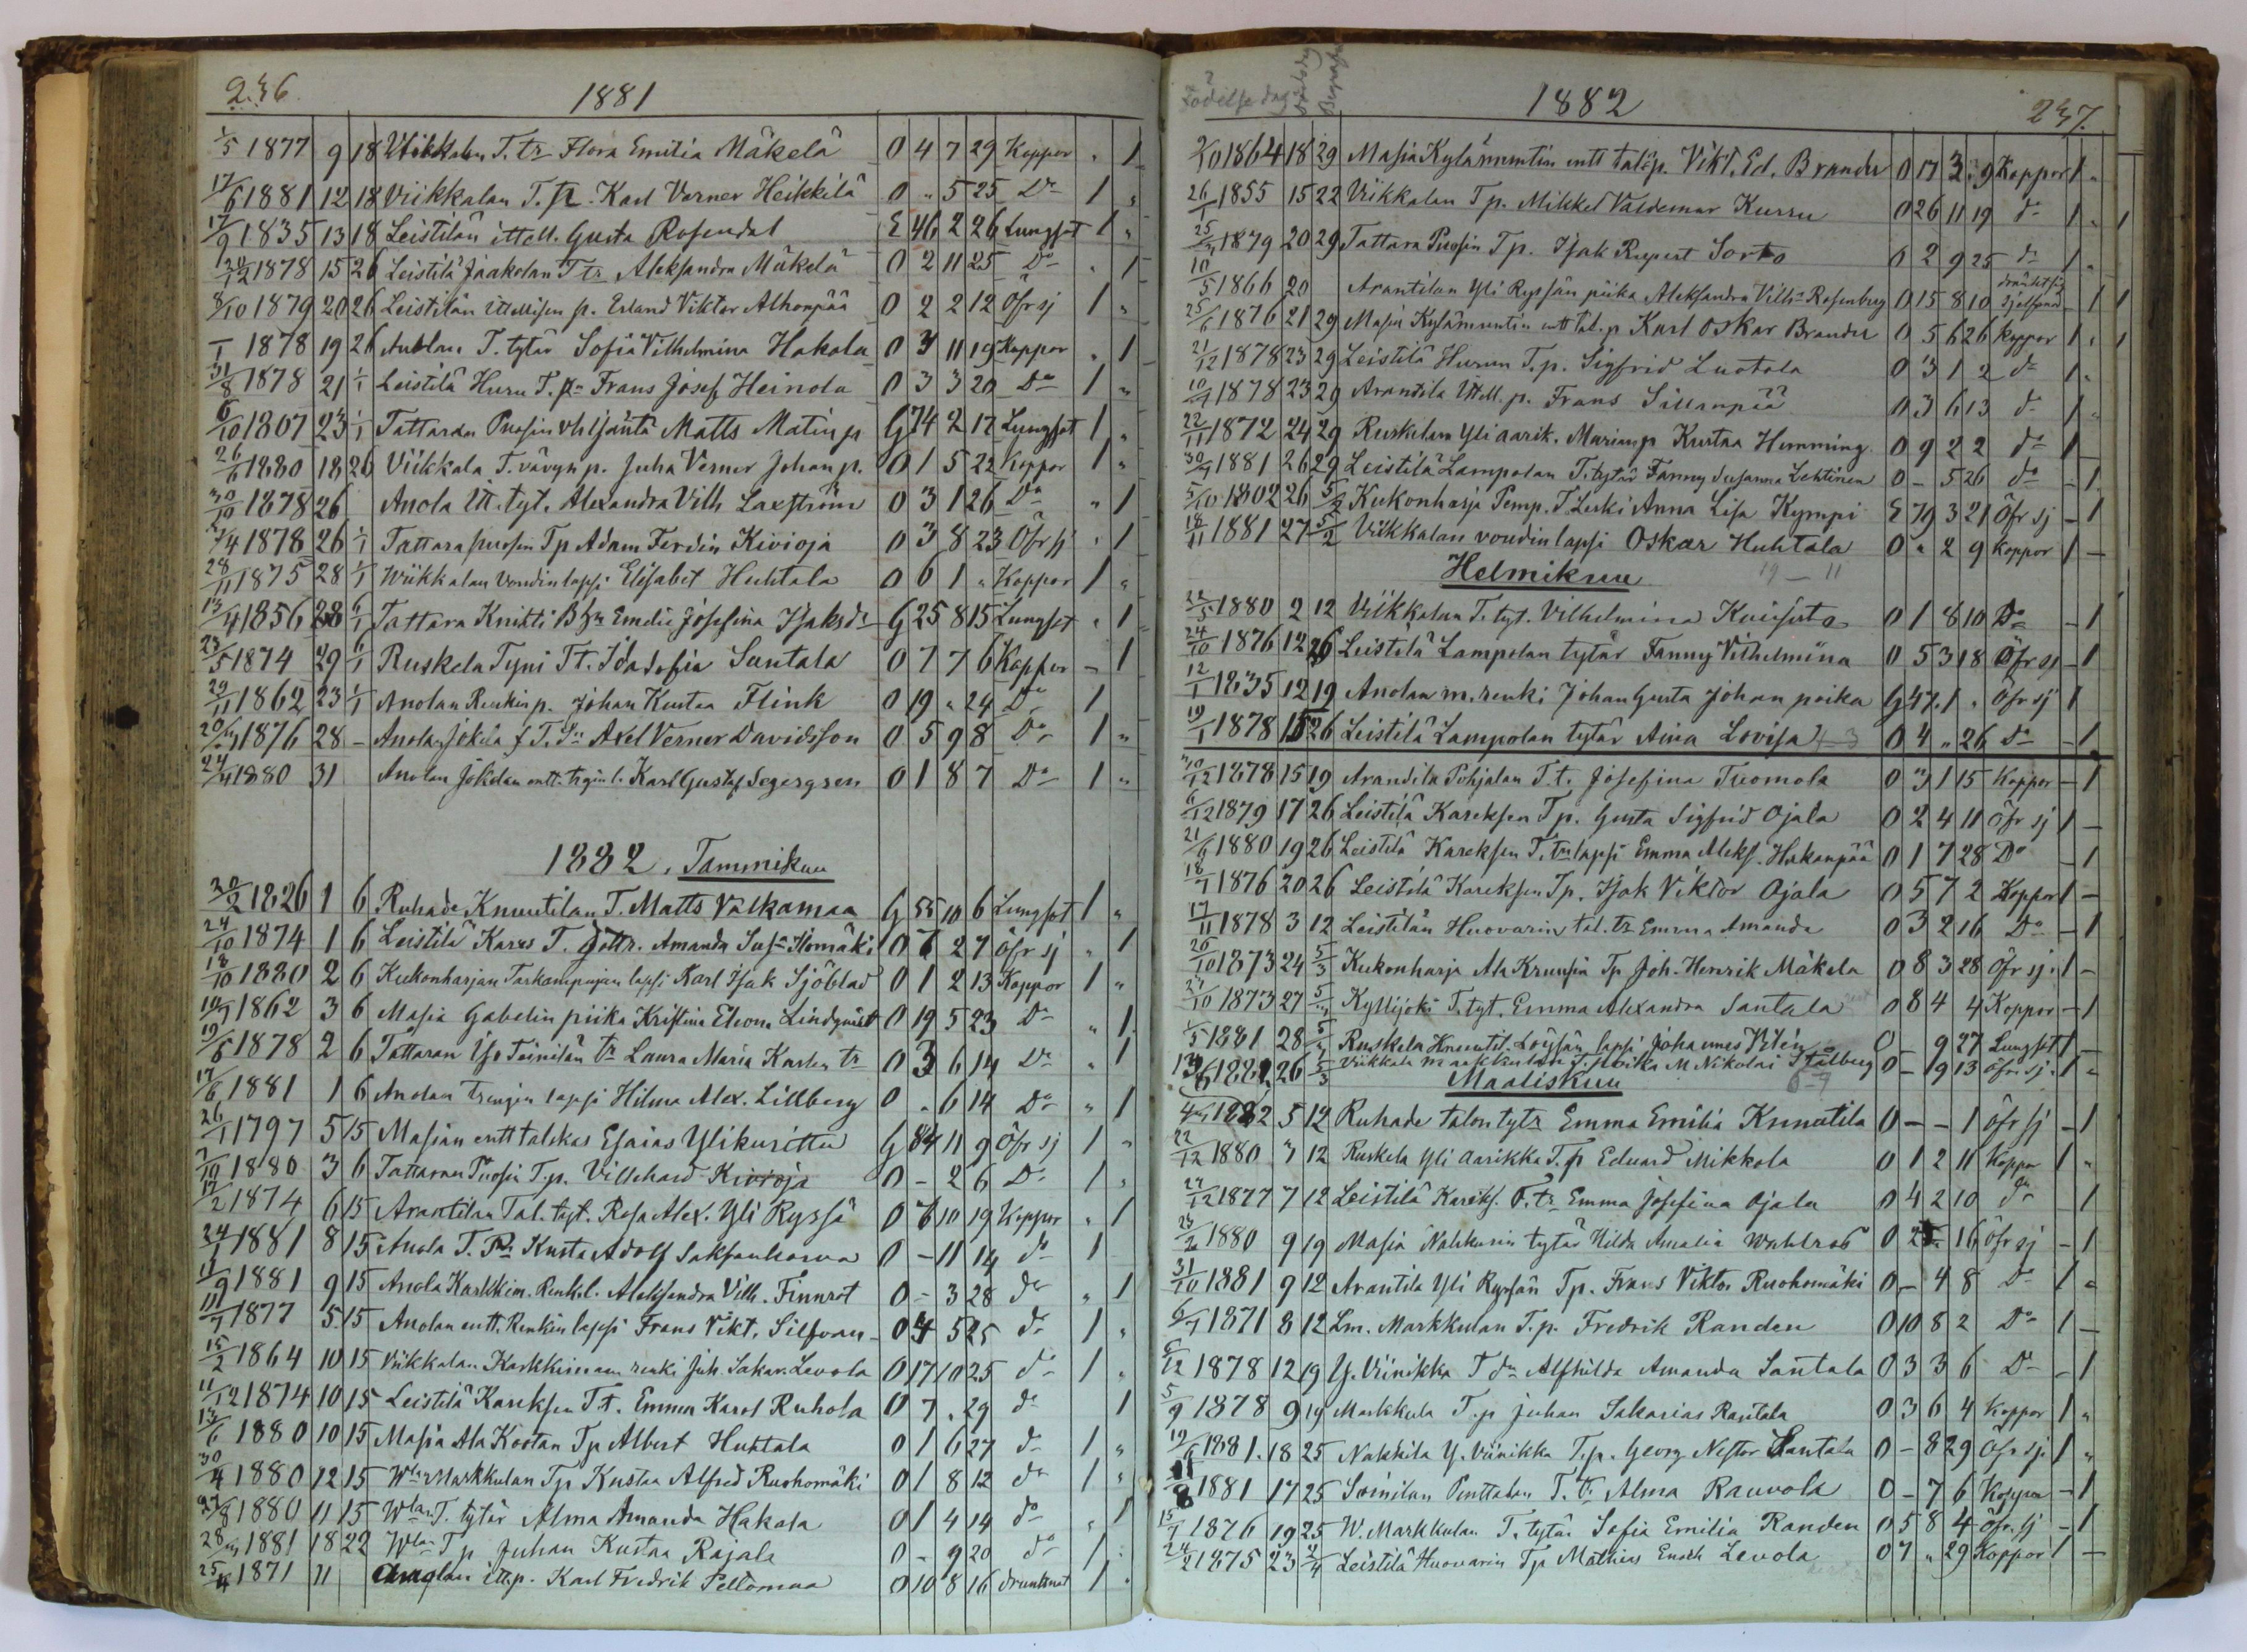 236 1881
1/5 1877 9 18 Viikkalan T. tr Flora Emilia Mäkelä 0 4 7 29 Koppor " 1
17/6 1881 12 18 Viikkalan T. p. Karl Verner Heikkilä 0 " 5 25 Do 1 "
17/9 1835 13 18 Leistilän ittell. Gusta Rosendal E 46 2 26 Lungsot 1 "
20/12 1878 15 26 Leistilä Jaakolan T tr Aleksandra Mäkelä 0 2 11 25 Do " 1
8/10 1879 20 26 Leistilän ittellisen p. Erland Viktor Alhonpää 0 2 2 12 Öfr sj 1 "
1/1 1878 19 26 T. tytär Sofia Vilhelmina Hakala 0 3 11 19 Koppor " 1
31/8 1878 21 1/1 Leistilä Huru T. p. Frans Josef Heinola 0 3 3 20 Do 1 "
6/10 1807 23 1/1 Tattaran Puosin Matts Matinp G 74 2 17 Lungsot 1 "
26/6 1880 18 26 Viikkala T. vävyn p. Juha Verner Johan p. 0 1 5 22 Koppor 1 "
30/10 1878 26 Anola Itt. tyt. Alexandra Vilh Laxström 0 3 1 26 Do " 1
4 1878 26 1/1 Tattara puosin Tp Adam Ferdin Kivioja 0 3 8 23 Öfr sj " 1
28/11 1875 28 1/1 Wiikkalan voudin lapsi Elisabet Huhtala 0 6 1 " Koppor 1 "
13/4 1856 28 6/1 Tattara Knihti Emelie Josefina Isaksdr G 25 8 15 Lungsot " 1
23/5 1874 29 6/1 Ruskela Tyni T t. Ida Sofia Santala 0 7 7 6 Koppor – 1
29/11 1862 23 1/1 Anolan Renkin p. Johan Kustaa Flink 0 19 " 24 Do 1
1876 28 – Anola Jokela Axel Verner Davidsson 0 5 9 8 Do 1 "
24/4 1880 31 Anolan Jokelan Karl Gustaf Segergren 0 1 8 7 Do 1 "
1882. Tammikuu
30/2 1826 1 6 Ruhade Knuutilan T. Matts Valkamaa G 55 10 6 Lungsot 1 "
24/10 1874 1 6 Leistilä Karvs T. dottr. Amanda Sus. Ilomäki 0 7 2 7 öfr sj " 1
18/10 1880 2 6 Kukonharjan lapsi Karl Isak Sjöblad 0 1 2 13 Koppor 1 "
10/7 1862 3 6 Masia Gabelin piika Kristina Eleon. Lindqvist 0 19 5 23 Do " 1
19/6 1878 2 6 Tattaran Iso Teinilän tr Laura Maria Karlen tr 0 3 6 14 Do " 1
17/6 1881 1 6 Anolan lapsi Hilma Alex. Lillberg 0 " 6 14 Do " 1
26/1 1797 5 15 Masian entt talokas Esaias Ylikurittu G 84 11 9 Öfr sj 1 "
7/10 1880 3 6 Tattaran Puosin T.p. Villehard Kivioja 0 – 2 6 Do 1 "
17/2 1874 6 15 Arantilan Tal. tyt. Rosa Alex. Yli Ryssä 0 7 10 19 Koppor " 1
24/1 1881 8 15 Anola T. Pa Kusta Adolf Saksanharva 0 – 11 14 do 1
11/9 1881 9 15 Anola Karkkim. Renkil. Aleksandra Vilh. Finnrot 0 – 3 28 do " 1
11/7 1877 5 15 Anolan entt. Renkin lapsi Frans Vikt. Silfvan 0 4 5 25 do 1 "
15/2 1864 10 15 Viikkalan Karkkimaan renki Juh. Sakar. Levola 0 17 10 25 do 1 "
11/12 1874 10 15 Leistilä Kareksen T t. Emma Karol Ruhola 0 7 " 29 do 1
13/6 1880 10 15 Masia Ala Kostan Tp Albert Huhtala 0 1 6 27 do 1 "
30/4 1880 12 15 Wla Markkulan Tp Kustaa Alfred Ruohomäki 0 1 8 12 do 1 "
27/8 1880 11 15 Wlan T. tytär Alma Amanda Hakala 0 1 4 14 do " 1
28/3 1881 18 22 Wlan Tp Juhan Kustaa Rajala 0 – 9 20 do 1 "
25/4 1871 11 ittp. Karl Fredrik Peltomaa 0 10 8 16 drunknat 1 "
Födelsedag Dödsdag
1882 237.
2/10 1864 18 29 Masia Kylämuntin entt talop. Vikt. Ed. Brander 0 17 3 9 Koppor 1 "
26/1 1855 15 22 Viikkalan T p. Mikkel Valdemar Kurru 0 26 11 19 do 1 " 1
25/3 1879 20 29 Tattara Puosin T p. Isak Rupert Sorto 0 2 9 25 do 1 "
10/5 1866 20 Arantilan Yli Ryssän piika Aleksandra Vilh Rosenberg 0 15 8 10 sjelfmord – 1 1
25/6 1876 21 29 Masia Kylämuntin entt tal. p Karl Oskar Brander 0 5 6 26 koppor 1 " 1
21/12 1878 23 29 Leistilä Hurun T.p. Sigfrid Luotola 0 3 1 2 do 1 "
10/7 1878 23 29 Arantila Ittell. p. Frans Sillanpää 0 3 6 13 do 1 "
22/11 1872 24 29 Ruskelan Yli aarik. Marian p Kustaa Hemming 0 9 2 2 do 1
30/7 1881 26 29 Leistilä Lampolan T. tytär Fanny Susanna Lehtinen 0 – 5 26 do – 1
5/10 1802 26 5/2 Kukonharja Pemp. T Leski Anna Lisa Kympi E 79 3 21 Öfr sj – 1
18/11 1881 27 5/2 Viikkalan voudin lapsi Oskar Huhtala 0 " 2 9 koppor 1 –
Helmikuu 19 – 11
22/5 1880 2 12 Viikkalan T. tyt. Vilhelmina Kuusisto 0 1 8 10 Do – 1
24/10 1876 12 26 Leistilä Lampolan tytär Fanny Vilhelmiina 0 5 3 18 Öfr sj – 1
12/1 1835 12 19 Anolan m. renki Johan Gusta Johan poika G 47 1 " öfr sj 1
19/1 1878 15 26 Leistilä Lampolan tytär Aina Lovisa 4–3 0 4 " 26 Do – 1
30/12 1878 15 19 Arandila Pohjalan T.t. Josefina Tuomola 0 3 1 15 Koppor – 1
6/12 1879 17 26 Leistilä Kareksen T p. Gusta Sigfrid Ojala 0 2 4 11 Öfr sj 1 –
21/6 1880 19 26 Leistilä Kareksen T. tr lapsi Emma Aleks. Hakanpää 0 1 7 28 Do – 1
18/7 1876 20 26 Leistilä Kareksen Tp. Isak Viktor Ojala 0 5 7 2 Koppor 1 –
17/11 1878 3 12 Leistilän Huovarin tal. tr Emma Amanda 0 3 2 16 Do – 1
26/10 1873 24 5/3 Kukonharja Ala Krunsin Tp Joh. Henrik Mäkela 0 8 3 28 Öfr sj. 1 –
27/10 1873 27 5/3 Kyllijoki T. tyt. Emma Alexandra Santala 0 8 4 4 Koppor – 1
1/5 1881 28 5/3 Ruskela Knuutil. lapsi Johannes 0 – 9 27 Lungsot 1 –
26 5/3 Viikkala M Nikolai Stålberg 0 – 19 13 öfr. sj. 1 –
Maaliskuu 6–7
4/3 1882 5 12 Ruhade talon tytr Emma Emilia Knuutila 0 – – 1 öfr sj – 1
22/12 1880 3 12 Ruskela Yli aarikka T. p Eduard Mikkola 0 1 2 11 Koppo 1 "
27/12 1877 7 12 Leistilä Kareks. T. tr Emma Josefina Ojala 0 4 2 10 do 1
23/2 1880 9 19 Masia Nahkurin tytär Hilda Amalia Wahlros 0 2 16 öfr sj – 1
31/10 1881 9 12 Arantila Yli Ryssän Tp. Frans Viktor Ruohomäki 0 – 4 8 Do 1 –
6/7 1871 8 12 Lm. Markkulan T. p. Fredrik Randen 0 10 8 2 Do 1 –
6/12 1878 12 19 Y. Viinikka T dr Alfhilda Amanda Santala 0 3 3 6 Do – 1
5/9 1878 9 19 Markkula T. p Juhan Sakarias Rantala 0 3 6 4 koppor 1 "
19/6 1881 18 25 Nakkila Y. Viinikka T.p. Georg Nestor Santala 0 – 8 29 Öfr sj. 1 "
11/8 1881 17 25 Soinilan Penttalan T. tr Alma Rauvola 0 – 7 6 Koppor – 1
15/7 1876 19 25 W. Markkulan T. tytär Sofia Emilia Randen 0 5 8 4 öfr. sj – 1
24/2 1875 23 2/4 Leistilä Huovarin Tp Mathias Enok Levola 0 7 " 29 Koppor 1 –